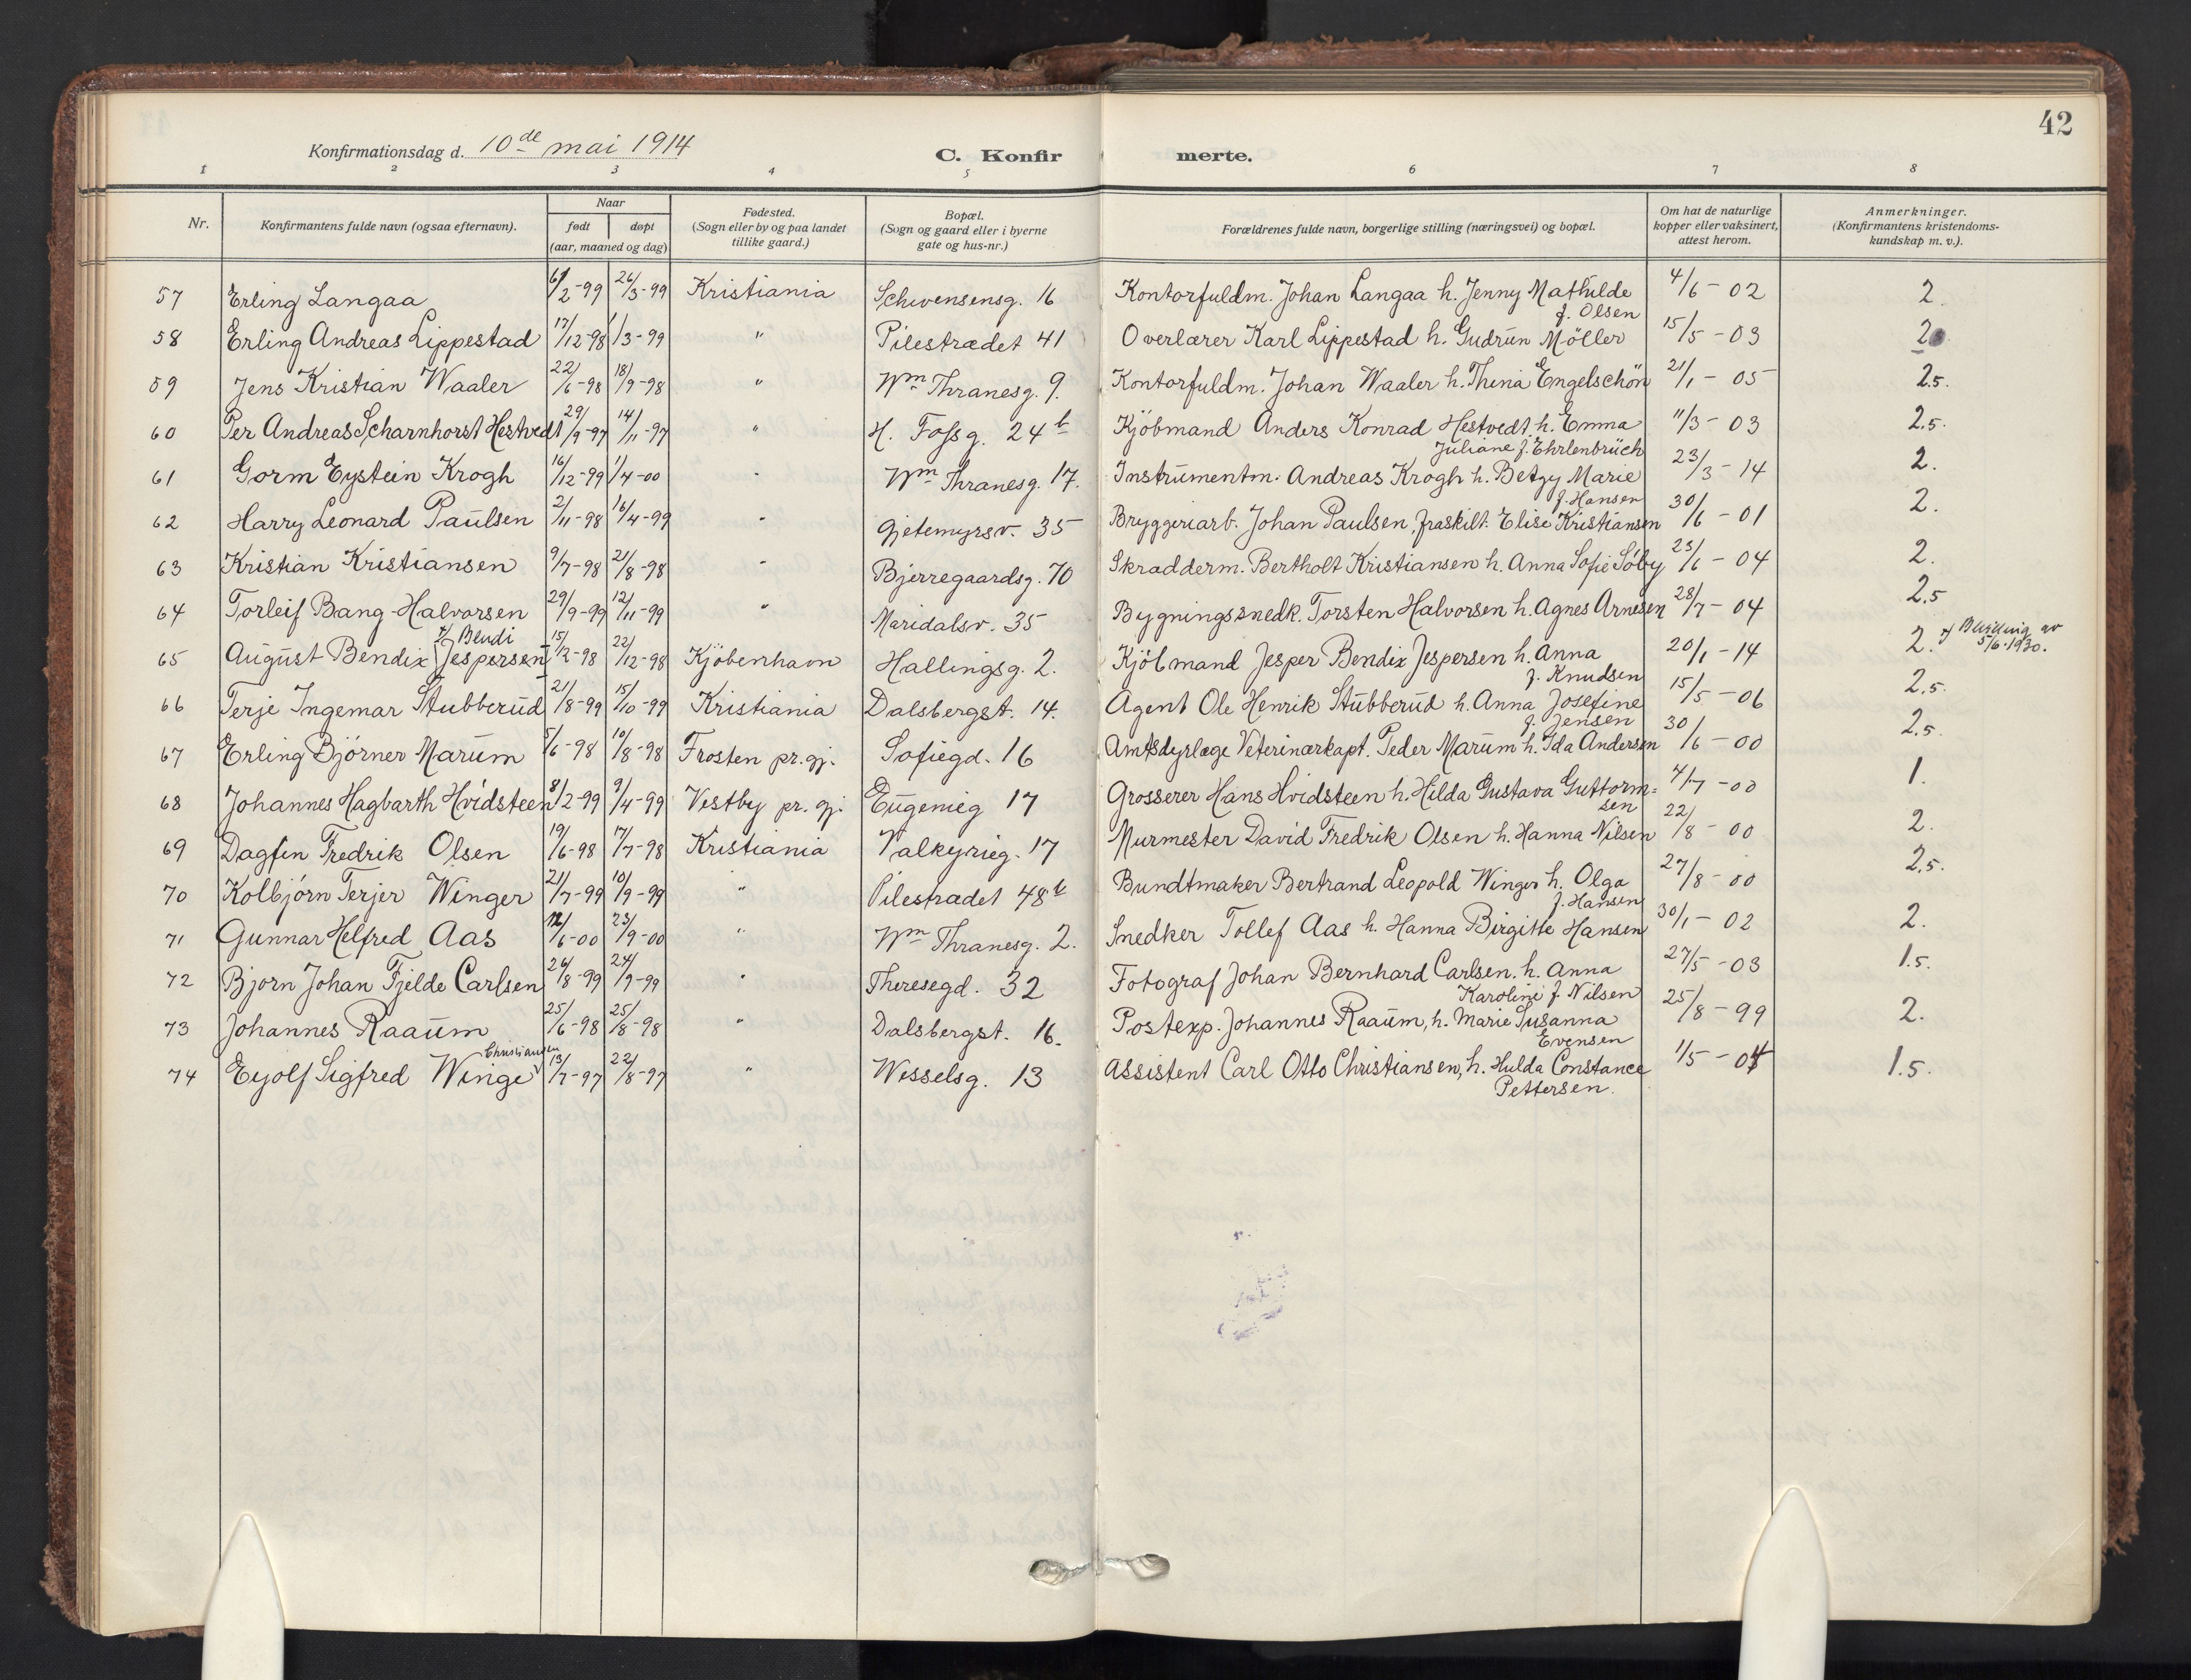 42
Konfirmationsdag d. 10de mai 1914 C. Konfir merte.
1 2 3 4 5 6 7 8
Nr. Konfirmantens fulde navn (ogsaa efternavn). Naar født døpt (aar, maaned og dag) Fødested. (Sogn eller by og paa landet tillike gaard.) Bopæl. (Sogn og gaard eller i byerne gate og hus-nr.) Forældrenes fulde navn, borgerlige stilling (næringsvei) og bopæl. Om hat de naturlige kopper eller vaksinert, attest herom. Anmerkninger. (Konfirmantens kristendoms-kundskap m. v.).
57 Erling Langaa 2-99 26/3-99 Kristiania Schwensensg. 16 Kontorfuldm. Johan Langaa h. Jenny Mathilde f. Olsen 4/6-02 2.
58 Erling Andreas Lippestad 17/12-98 1/3-99 " Pilestrædet 41 Overlærer Karl Lippestad h. Gudrun Möller 15/5-03 2
59 Jens Kristian Waaler 22/6-98 18/9-98 " Wm Thranesg. 9. Kontorfuldm. Johan Waaler h. Thina Engelschön 21/1-05 2.5.
60 Per Andreas Scharnhorst Hestvedt 29/9-97 14/11-97 " H. Fossg. 24b Kjöbmand Anders Konrad Hestvedt h. Emma Juliane f. Ehrlenbrüch 11/3-03 2.5.
61 Gorm Eystein Krogh 16/12-99 1/4-00 " Wm Thranesg. 17. Instrumentm. Andreas Krogh h. Betzy Marie f. Hansen 23/3-14 2.
62 Harry Leonard Paulsen 2/11-98 16/4-99 " Gjetemyrsv. 35 Bryggeriarb. Johan Paulsen, fraskilt. Elise Kristiansen 30/6-01 2.
63 Kristian Kristiansen 9/7-98 21/8-98 " Bjerregaardsg. 70 Skradderm. Bertholt Kristiansen h. Anna Sofie Söby 23/6-04 2.
64 Torleif Bang-Halvorsen 29/9-99 12/11-99 " Maridalsv. 35 Bygningssnedk. Torsten Halvorsen h. Agnes Arnesen 28/7-04 2.5
65 August Bendix Jespersen Bendi 15/2-98 22/12-98 Kjöbenhavn Hallingsg. 2. Kjöbmand Jesper Bendix Jespersen h. Anna f. Knudsen 20/1-14 2. Bevilling av 5/6-1930.
66 Terje Ingemar Stubberud 21/8-99 15/10-99 Kristiania Dalsbergst. 14. Agent Ole Henrik Stubberud h. Anna Josefine f. Jensen 15/5-06 2.5.
67 Erling Björner Marum 5/6-98 10/8-98 Frosten pr.gj. Sofiegd. 16 Amtsdyrlæge Veterinærkapt. Peder Marum h. Ida Andersen 30/6-00 2.5.
68 Johannes Hagbarth Hvidsteen 8/2-99 9/4-99 Vestby pr. gj. Eugenieg 17 Grosserer Hans Hvidsteen h. Hilda Gustava Guttorm=sen 4/7-00 1.
69 Dagfin Fredrik Olsen 19/6-98 17/7-98 Kristiania Valkyrieg. 17 Murmester David Fredrik Olsen h. Hanna Nilsen 22/8-00 2.
70 Kolbjörn Terjer Winger 21/7-99 10/9-99 " Pilestrædet 48b Bundtmaker Bertrand Leopold Winger h. Olga f. Hansen 27/8-00 2.5.
71 Gunnar Helfred Aas 6-00 23/9-00 " Wm Thranesg. 2. Snedker Tollef Aas h. Hanna Birgitte Hansen 30/1-02 2.
72 Bjorn Johan Fjelde Carlsen 26/8-99 24/9-99 " Theresegd. 32 Fotograf Johan Bernhard Carlsen, h. Anna Karoline f. Nilsen 27/5-03 1.5.
73 Johannes Raaum 25/6-98 25/8-98 " Dalsbergst. 16. Postexp. Johannes Raaum, h. Marie Susanna Evensen 25/8-99 2.
74 Eyolf Sigfred Winge Christiansen 13/7-97 22/8-97 " Wesselsg. 13 Assistent Carl Otto Christiansen, h. Hulda Constance Pettersen. 1/5-04 1.5.